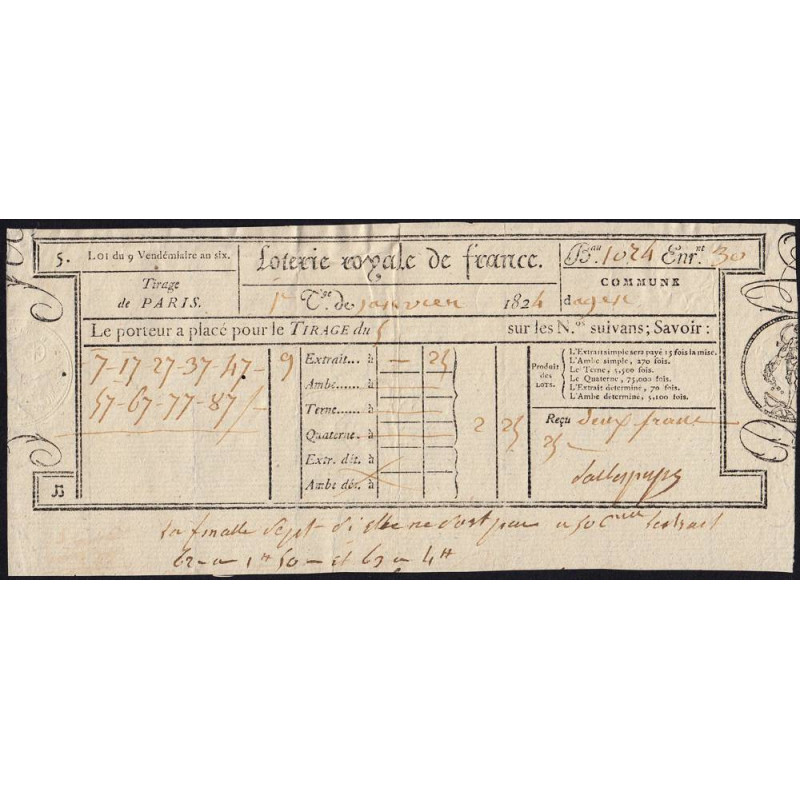 5.
Loi du 9 Vendémiaire au six.
Tirage
de PARIS.
Loterie royale de france.
1er T.ge de janvier 1824
B.au 1024 Enr.nt 30
COMMUNE
d'agen
Le porteur a placé pour le TIRAGE du 5 sur les N.os suivans; Savoir :
7-17 27-37-47- 9
57-67-77-87/-
Extrait.. à — 25
Ambe..... à
Terne...... à
Quaterne. à
Extr. dét. à
Ambe dét. à
2 25
Produit
des
LOTS.
L'Extrait simple sera payé 15 fois la mise.
L'Ambe simple, 270 fois.
Le Terne, 5,500 fois.
Le Quaterne, 75,000 fois.
L'Extrait déterminé, 70 fois.
L'Ambe déterminé, 5,100 fois.
Reçu deux franc
25 —
JJ
la finalle sept si elle ne sort pas a 50 C l'extrait
62 — a 1# 50 — et 63 a 4#